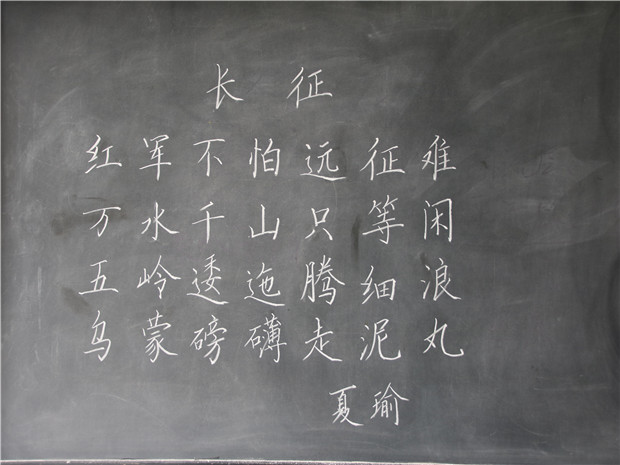 长征
红军不怕远征难
万水千山只等闲
五岭逶迤腾细浪
乌蒙磅礴走泥丸
夏瑜